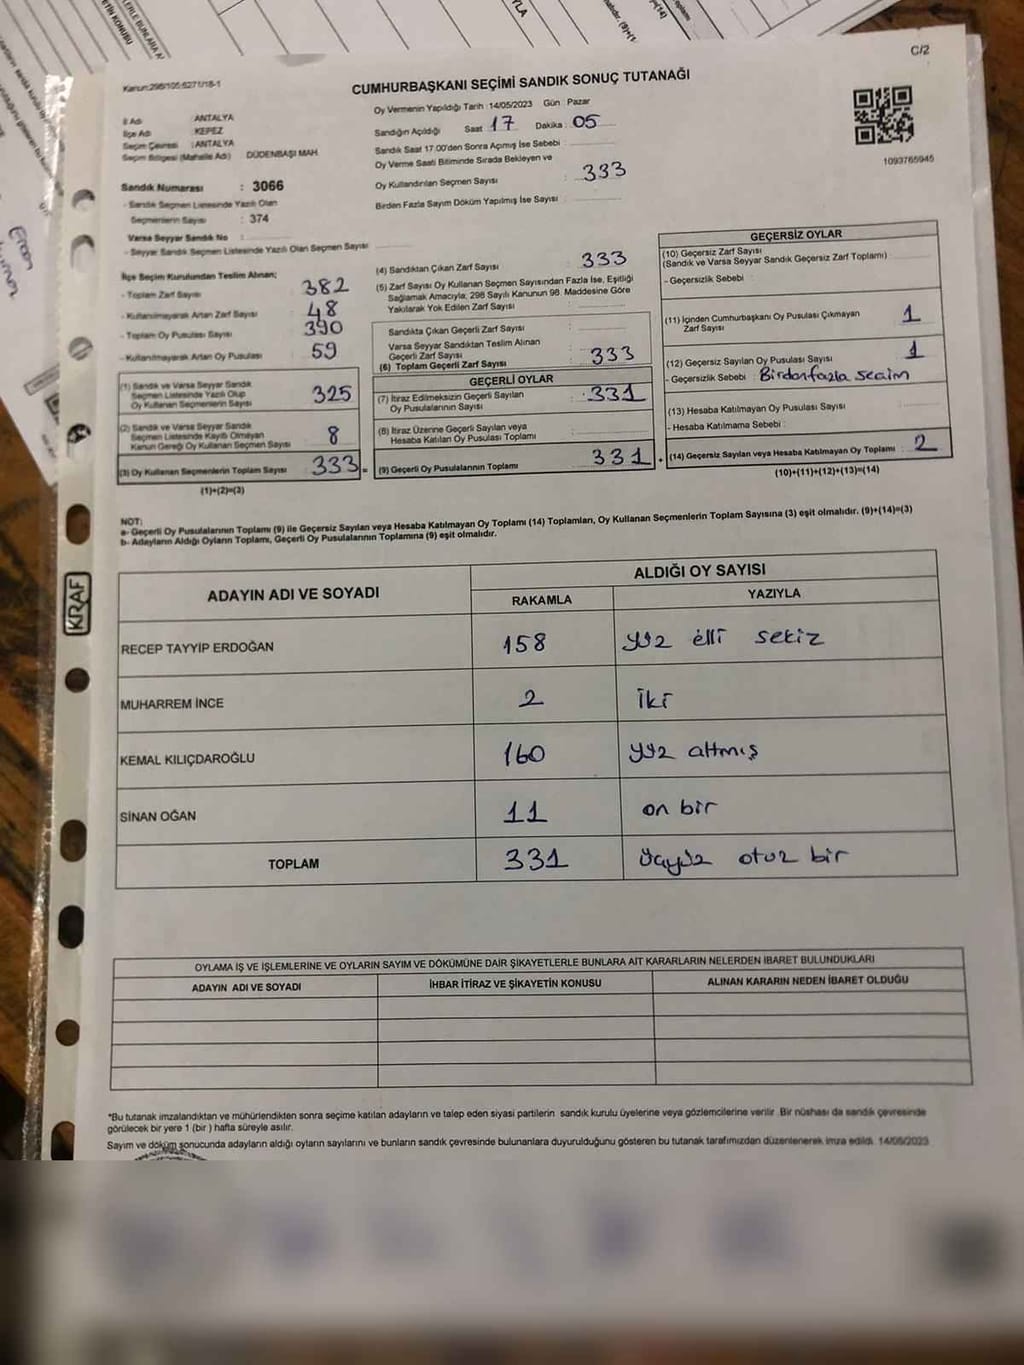 C/2
Kanun:298/105:6271/18-1
CUMHURBAŞKANI SEÇİMİ SANDIK SONUÇ TUTANAĞI
İl Adı : ANTALYA
İlçe Adı : KEPEZ
Seçim Çevresi : ANTALYA
Seçim Bölgesi (Mahalle Adı) : DÜDENBAŞI MAH.
Sandık Numarası : 3066
- Sandık Seçmen Listesinde Yazılı Olan
Seçmenlerin Sayısı : 374
Varsa Seyyar Sandık No :
- Seyyar Sandık Seçmen Listesinde Yazılı Olan Seçmen Sayısı
Oy Vermenin Yapıldığı Tarih :14/05/2023 Gün : Pazar
Sandığın Açıldığı Saat 17 Dakika : 05
Sandık Saat 17.00'den Sonra Açımış İse Sebebi :
Oy Verme Saati Bitiminde Sırada Bekleyen ve
Oy Kullandırılan Seçmen Sayısı : 333
Birden Fazla Sayım Döküm Yapılmış İse Sayısı :
1093765945
İlçe Seçim Kurulundan Teslim Alınan;
- Toplam Zarf Sayısı : 382
- Kullanılmayarak Artan Zarf Sayısı : 48
- Toplam Oy Pusulası Sayısı : 390
- Kullanılmayarak Artan Oy Pusulası : 59
(1) Sandık ve Varsa Seyyar Sandık
Seçmen Listesinde Yazılı Olup
Oy Kullanan Seçmenlerin Sayısı : 325
(2) Sandık ve Varsa Seyyar Sandık
Seçmen Listesinde Kayıtlı Olmayan
Kanun Gereği Oy Kullanan Seçmen Sayısı : 8
(3) Oy Kullanan Seçmenlerin Toplam Sayısı : 333 =
(1)+(2)=(3)
(4) Sandıktan Çıkan Zarf Sayısı : 333
(5) Zarf Sayısı Oy Kullanan Seçmen Sayısından Fazla İse, Eşitliği
Sağlamak Amacıyla; 298 Sayılı Kanunun 98. Maddesine Göre
Yakılarak Yok Edilen Zarf Sayısı :
Sandıkta Çıkan Geçerli Zarf Sayısı :
Varsa Seyyar Sandıktan Teslim Alınan
Geçerli Zarf Sayısı :
(6) Toplam Geçerli Zarf Sayısı : 333
GEÇERLİ OYLAR
(7) İtiraz Edilmeksizin Geçerli Sayılan
Oy Pusulalarının Sayısı : 331
(8) İtiraz Üzerine Geçerli Sayılan veya
Hesaba Katılan Oy Pusulası Toplamı :
(9) Geçerli Oy Pusulalarının Toplamı : 331 +
GEÇERSİZ OYLAR
(10) Geçersiz Zarf Sayısı
(Sandık ve Varsa Seyyar Sandık Geçersiz Zarf Toplamı) :
- Geçersizlik Sebebi :
(11) İçinden Cumhurbaşkanı Oy Pusulası Çıkmayan
Zarf Sayısı : 1
(12) Geçersiz Sayılan Oy Pusulası Sayısı : 1
- Geçersizlik Sebebi : Birden fazla seçim
(13) Hesaba Katılmayan Oy Pusulası Sayısı :
- Hesaba Katılmama Sebebi :
(14) Geçersiz Sayılan veya Hesaba Katılmayan Oy Toplamı : 2
(10)+(11)+(12)+(13)=(14)
NOT:
a- Geçerli Oy Pusulalarının Toplamı (9) ile Geçersiz Sayılan veya Hesaba Katılmayan Oy Toplamı (14) Toplamları, Oy Kullanan Seçmenlerin Toplam Sayısına (3) eşit olmalıdır. (9)+(14)=(3)
b- Adayların Aldığı Oyların Toplamı, Geçerli Oy Pusulalarının Toplamına (9) eşit olmalıdır.
KRAF
ADAYIN ADI VE SOYADI
ALDIĞI OY SAYISI
RAKAMLA YAZIYLA
RECEP TAYYİP ERDOĞAN 158 yüz elli sekiz
MUHARREM İNCE 2 iki
KEMAL KILIÇDAROĞLU 160 yüz altmış
SİNAN OĞAN 11 on bir
TOPLAM 331 üçyüz otuz bir
OYLAMA İŞ VE İŞLEMLERİNE VE OYLARIN SAYIM VE DÖKÜMÜNE DAİR ŞİKAYETLERLE BUNLARA AİT KARARLARIN NELERDEN İBARET BULUNDUKLARI
ADAYIN ADI VE SOYADI İHBAR İTİRAZ VE ŞİKAYETİN KONUSU ALINAN KARARIN NEDEN İBARET OLDUĞU
*Bu tutanak imzalandıktan ve mühürlendikten sonra seçime katılan adayların ve talep eden siyasi partilerin sandık kurulu üyelerine veya gözlemcilerine verilir. Bir nüshası da sandık çevresinde
görülecek bir yere 1 (bir) hafta süreyle asılır.
Sayım ve döküm sonucunda adayların aldığı oyların sayılarını ve bunların sandık çevresinde bulunanlara duyurulduğunu gösteren bu tutanak tarafımızdan düzenlenerek imza edildi. 14/05/2023